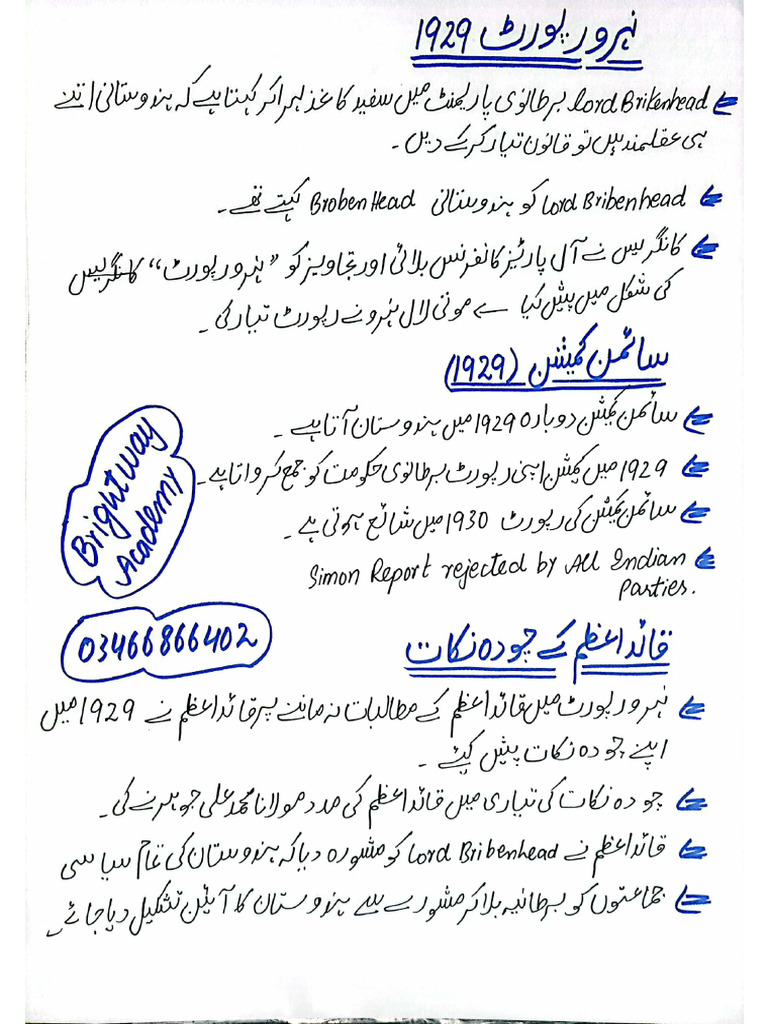 نہرو رپورٹ 1929
Lord Brikenhead برطانوی پارلیمنٹ میں سفید کاغذ لہرا کر کہتا ہے کہ ہندوستانی اتنے
ہی عقلمند ہیں تو قانون تیار کر کے دیں۔
Lord Bribenhead کو ہندوستانی Broben Head کہتے تھے۔
کانگریس نے آل پارٹیز کانفرنس بلائی اور تجاویز کو "نہرو رپورٹ" کانگریس
کی شکل میں پیش کیا موتی لال نہرو نے رپورٹ تیار کی۔
سائمن کمیشن (1929)
سائمن کمیشن دوبارہ 1929 میں ہندوستان آتا ہے۔
1929 میں کمیشن اپنی رپورٹ برطانوی حکومت کو جمع کرواتا ہے۔
سائمن کمیشن کی رپورٹ 1930 میں شائع ہوتی ہے۔
Simon Report rejected by All Indian
Parties.
Bright way
Academy
03466866402
قائداعظم کے چودہ نکات
نہرو رپورٹ میں قائداعظم کے مطالبات نہ ماننے پر قائداعظم نے 1929 میں
اپنے چودہ نکات پیش کیے۔
چودہ نکات کی تیاری میں قائداعظم کی مدد مولانا محمد علی جوہر نے کی۔
قائداعظم نے Lord Bribenhead کو مشورہ دیا کہ ہندوستان کی تمام سیاسی
جماعتوں کو برطانیہ بلا کر مشورے سے ہندوستان کا آئین تشکیل دیا جائے۔